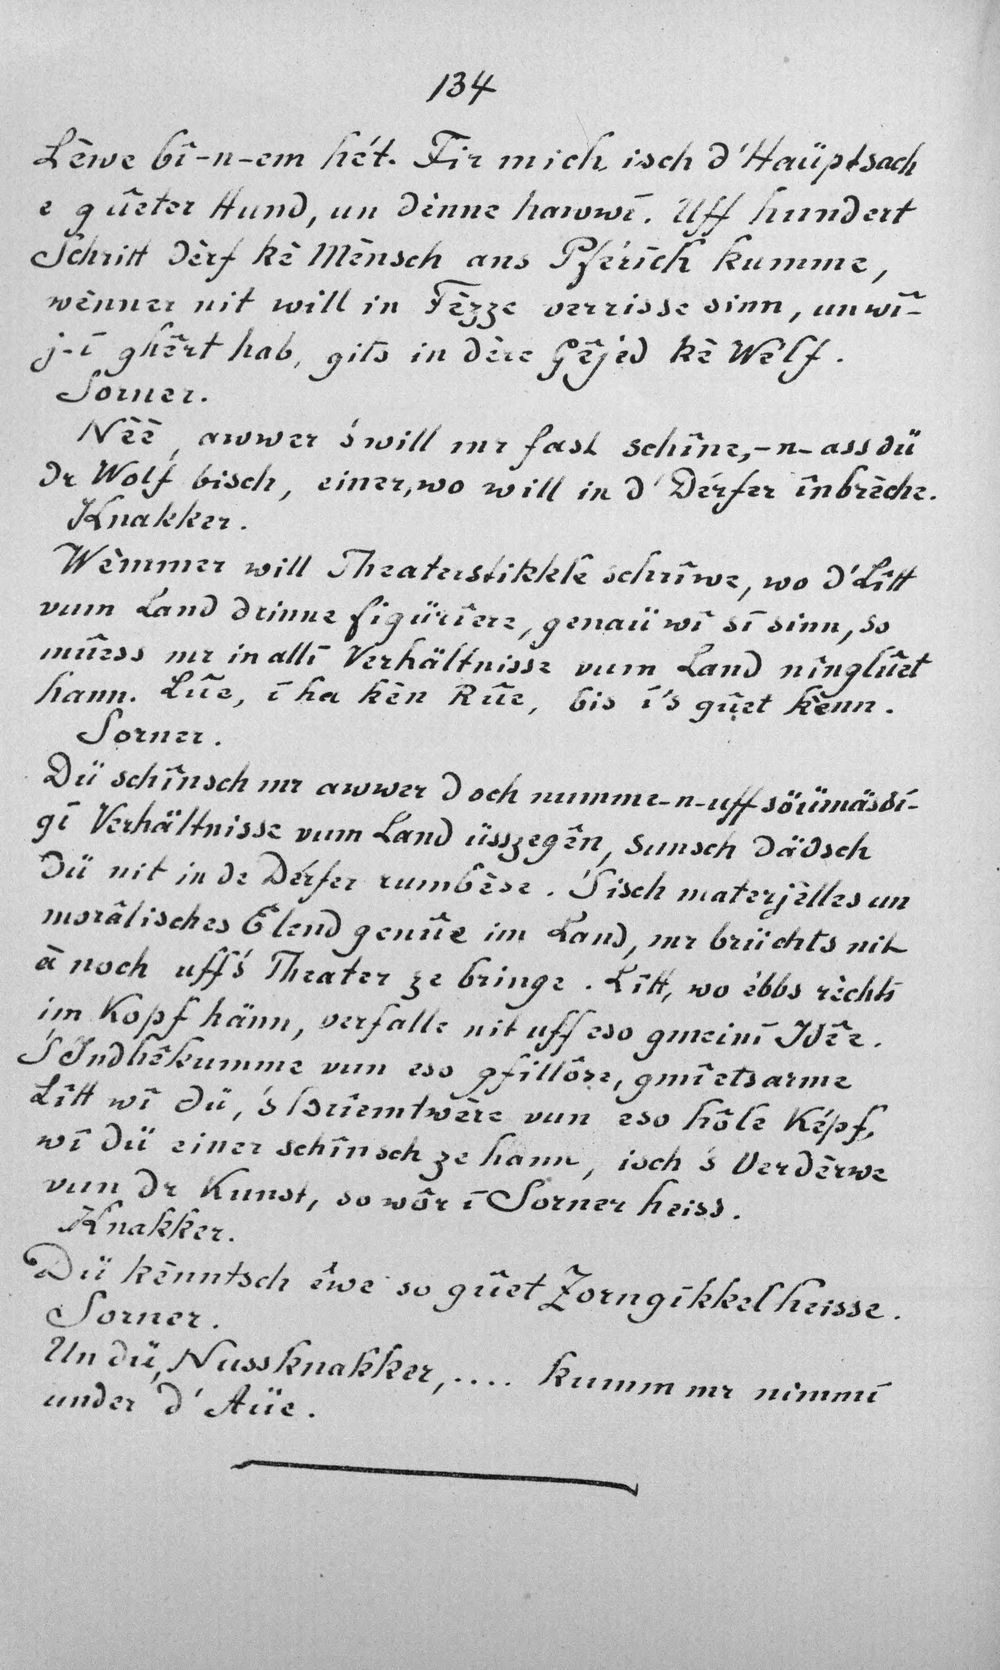 134
Lèwe bî-n-em hét. Fir mich isch d'Haüptsach
e gûeter Hund, un dènne hawwī. Uff hundert
Schritt dèrf kè Mènsch ans Pférich kumme,
wènner nit will in Fèzze verrisse sinn, un wî-
j-ī ghêrt hab, gits in dère Gêjed kè Welf.
Sorner.
Nèè, awwer 's will mr fast schîne,-n-ass dü
dr Wolf bisch, einer, wo will in d'Dérfer înbrèche.
Knakker.
Wèmmer will Theaterstikkle schrîwe, wo d'Lîtt
vum Land drinne figürîere, genaü wî sī sinn, so
mûess mr in allī Verhältnisse vum Land nînglûet
hann. Lûe, ī ha kèn Rûe, bis ī's gûet kènn.
Sorner.
Dü schînsch mr awwer doch numme-n-uff söümäsdī-
gī Verhältnisse vum Land üsszegên, sunsch dädsch
dü nit in de Dérfer rumbèse. 'S isch materjèlles un
morâlisches Êlend genûe im Land, mr brüchts nit
à noch uff's Theater ze bringe. Lîtt, wo èbbs rèchts
im Kopf hänn, verfalle nit uff eso gmeinī Idêe.
'S Indhêkumme vun eso gfillôse, gmîetsarme
Lîtt wî dü, 's Brîemtwère vun eso hôle Képf,
wî dü einer schînsch ze hann, isch 's Verdèrwe
vun dr Kunst, so wôr ī Sorner heiss.
Knakker.
Dü kènntsch êwe so gûet Zorngikkel heisse.
Sorner.
Un dü, Nussknakker, .... kumm mr nimmī
under d'Aüe.